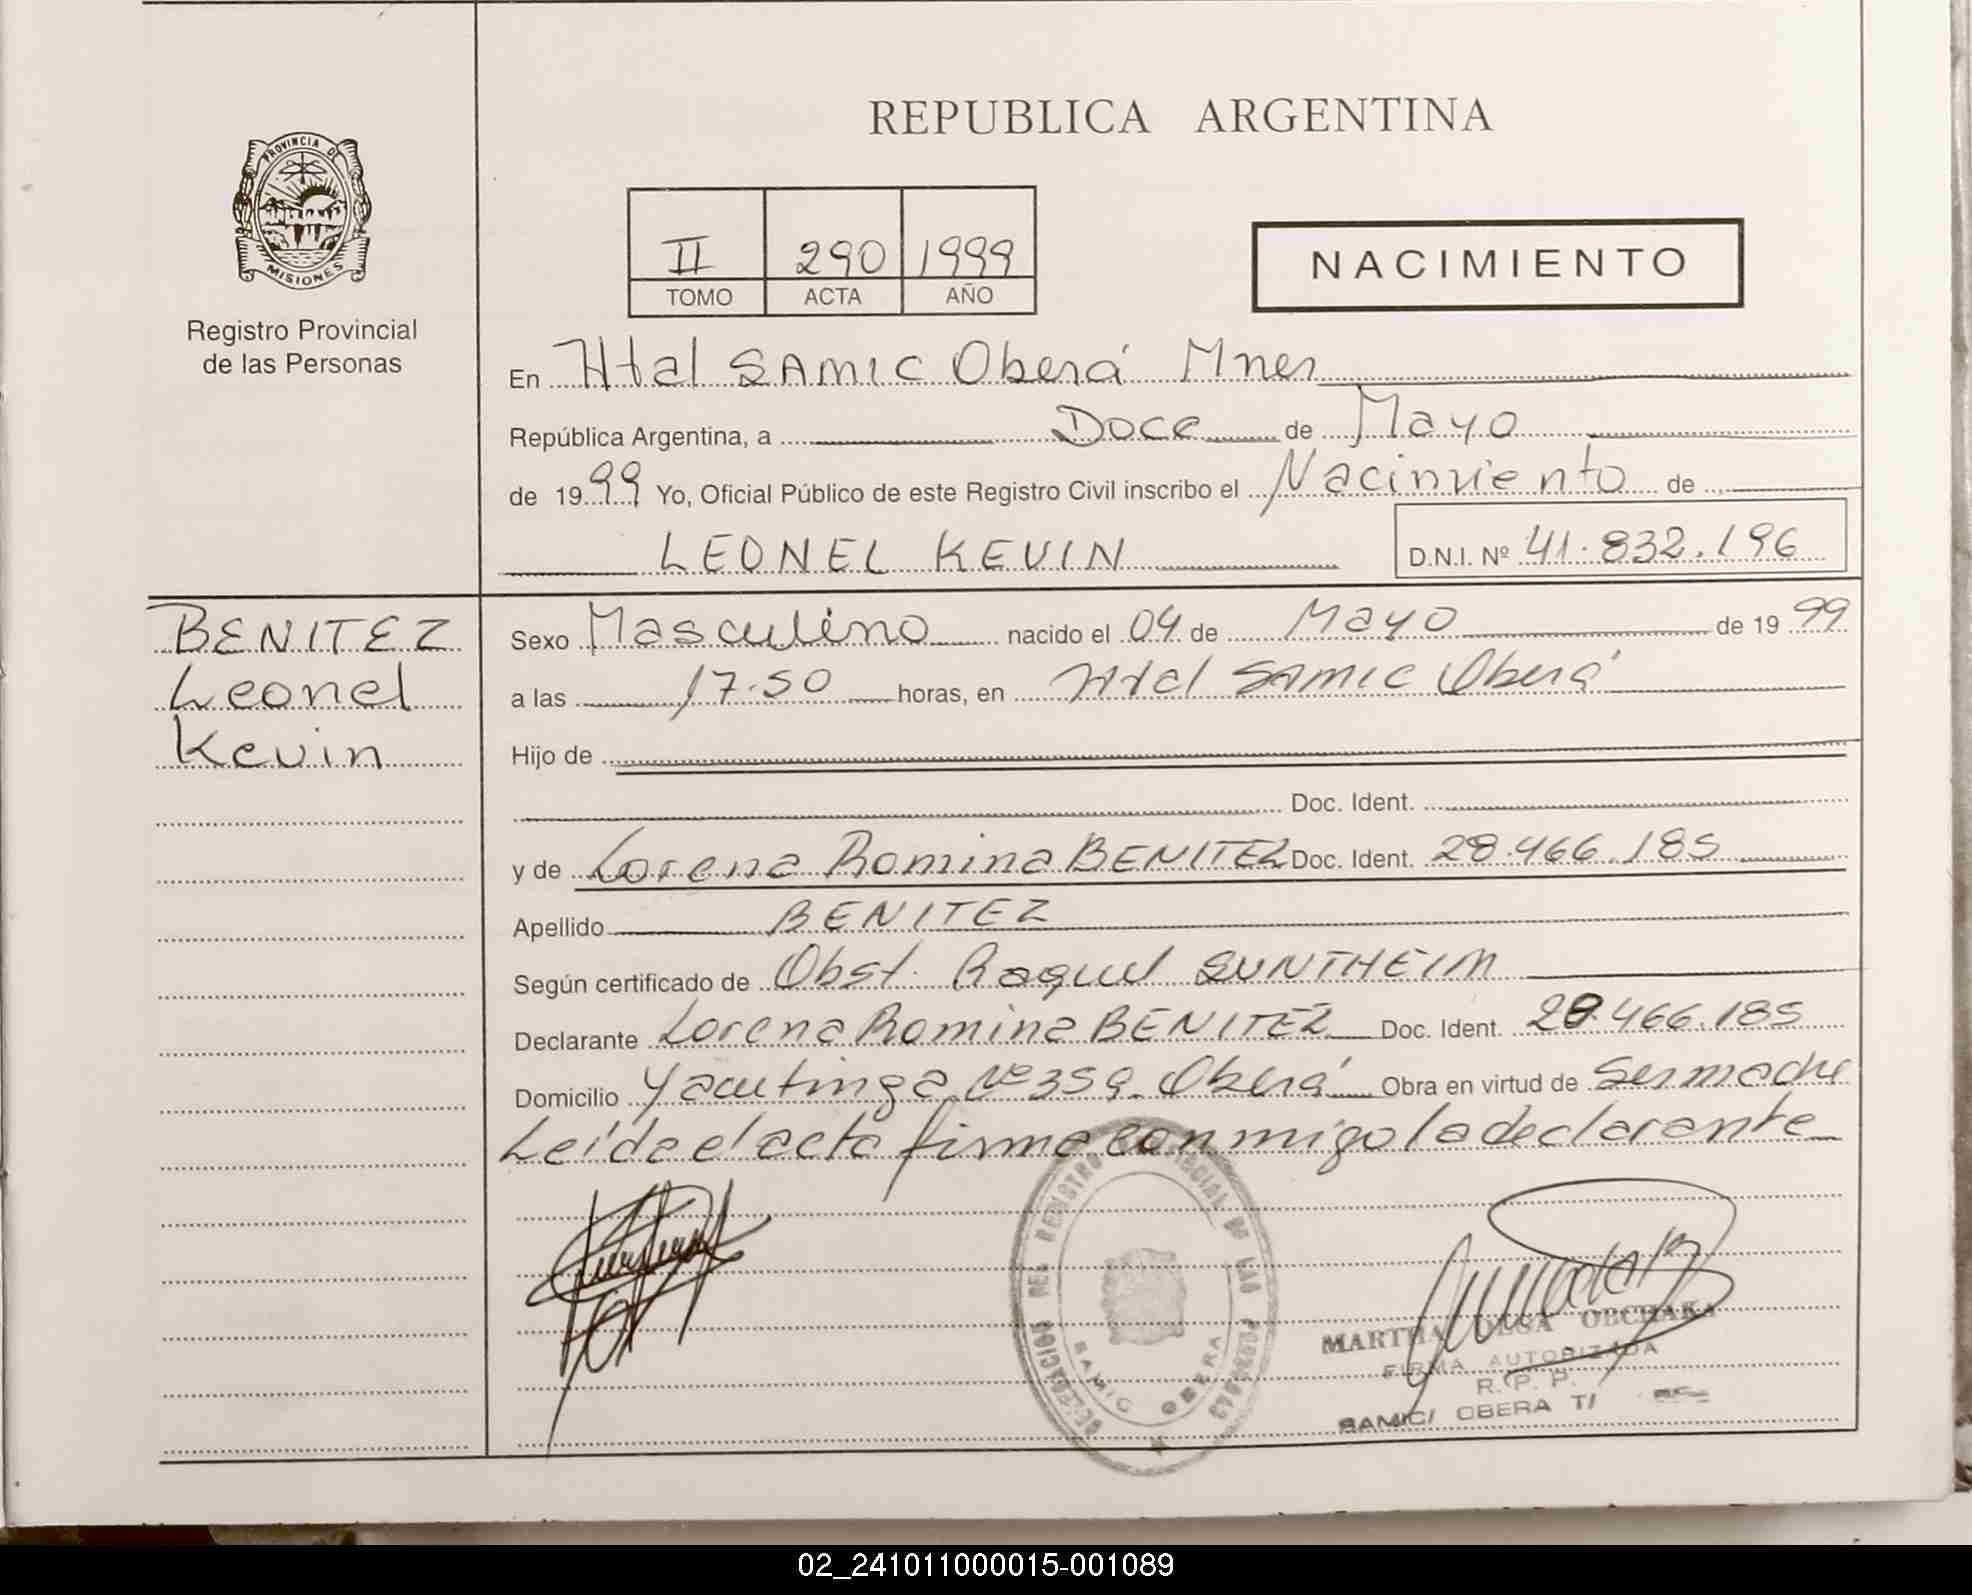 REPUBLICA ARGENTINA
PROVINCIA DE
MISIONES
Registro Provincial
de las Personas
II 290 1999
TOMO ACTA AÑO
NACIMIENTO
En Htal SAMIC Oberá Mnes
República Argentina, a Doce de Mayo
de 1999 Yo, Oficial Público de este Registro Civil inscribo el Nacimiento de
LEONEL KEVIN D.N.I. Nº 41.832.196
BENITEZ
Leonel
Kevin
Sexo Masculino nacido el 04 de Mayo de 1999
a las 17.50 horas, en Htal SAMIC Oberá
Hijo de
Doc. Ident.
y de Lorena Romina BENITEZ Doc. Ident. 28.466.185
Apellido BENITEZ
Según certificado de Obst. Raquel SUNTHEIM
Declarante Lorena Romina BENITEZ Doc. Ident. 28.466.185
Domicilio Yacutinga Nº 359. Oberá Obra en virtud de Ser madre
Leída el acta firma conmigo la declarante
DELEGACION DEL REGISTRO PROVINCIAL DE LAS PERSONAS
SAMIC OBERA
MARTHA OLGA OBCHAKA
FIRMA AUTORIZADA
R. P. P.
SAMIC/ OBERA T/
02_241011000015-001089